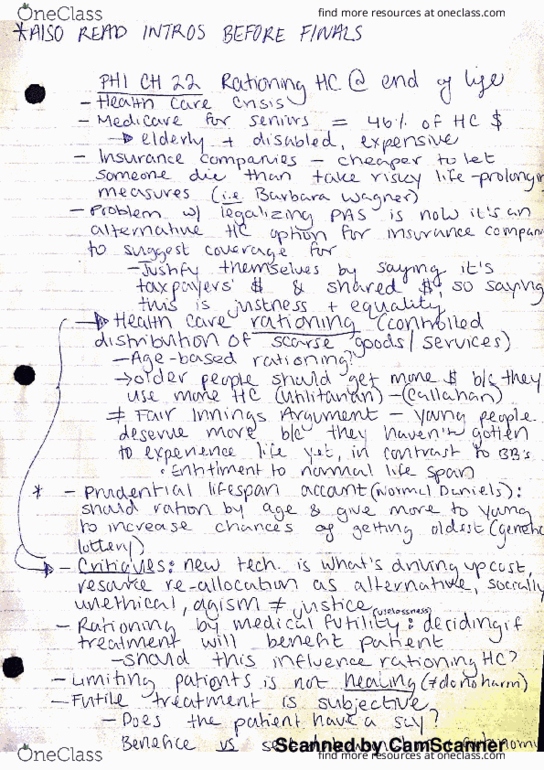 OneClass
find more resources at oneclass.com
*ALSO READ INTROS BEFORE FINALS
PHI CH 22 Rationing HC @ end of life
- Health Care Crisis
- Medicare for seniors = 46% of HC $
→ elderly + disabled, expensive
- Insurance companies - cheaper to let
someone die than take risky life-prolongin
measures (i.e Barbara Wagner)
- Problem w/ legalizing PAS is now it's an
alternative HC option for insurance compan
to suggest coverage for
- Justify themselves by saying it's
taxpayers' $ & shared $, so saying
this is justness + equality
→ Health care rationing (controlled
distribution of scarse goods/services)
- Age-based rationing?
→ older people should get more $ b/c they
use more HC (utilitarian) - (Callahan)
≠ Fair Innings Argument - young people
deserve more b/c they haven't gotten
to experience life yet, in contrast to BB's
• Entitlment to normal life span
* - Prudential lifespan account (Normal Daniels):
should ration by age & give more to young
to increase chances of getting oldest (genetic
lottery)
→ - Critiques: new tech. is what's driving up cost,
resource re-allocation as alternative, socially
unethical, agism ≠ justice
(uselessness)
- Rationing by medical futility: deciding if
treatment will benefit patient
- should this influence rationing HC?
- Limiting patients is not healing (≠ do no harm)
- Futile treatment is subjective
- Does the patient have a say?
Benefice vs
Scanned by CamScanner
OneClass
find more resources at oneclass.com